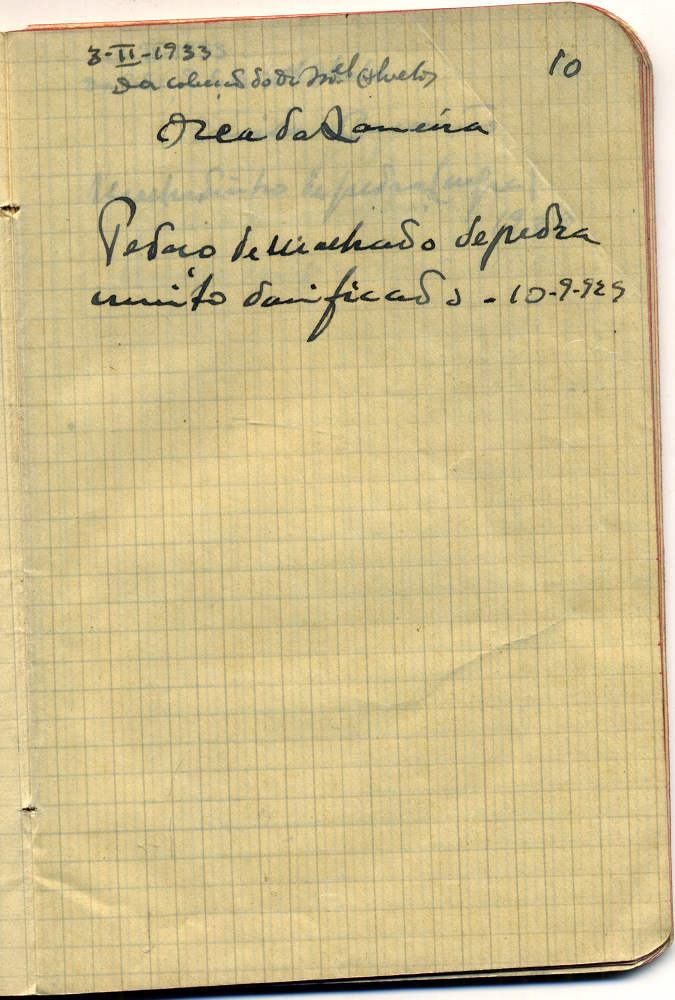 3-II-1933
10
Da colecção do Dr
Orca da Lameira
Pedaço de machado de pedra
muito danificado - 10-9-929